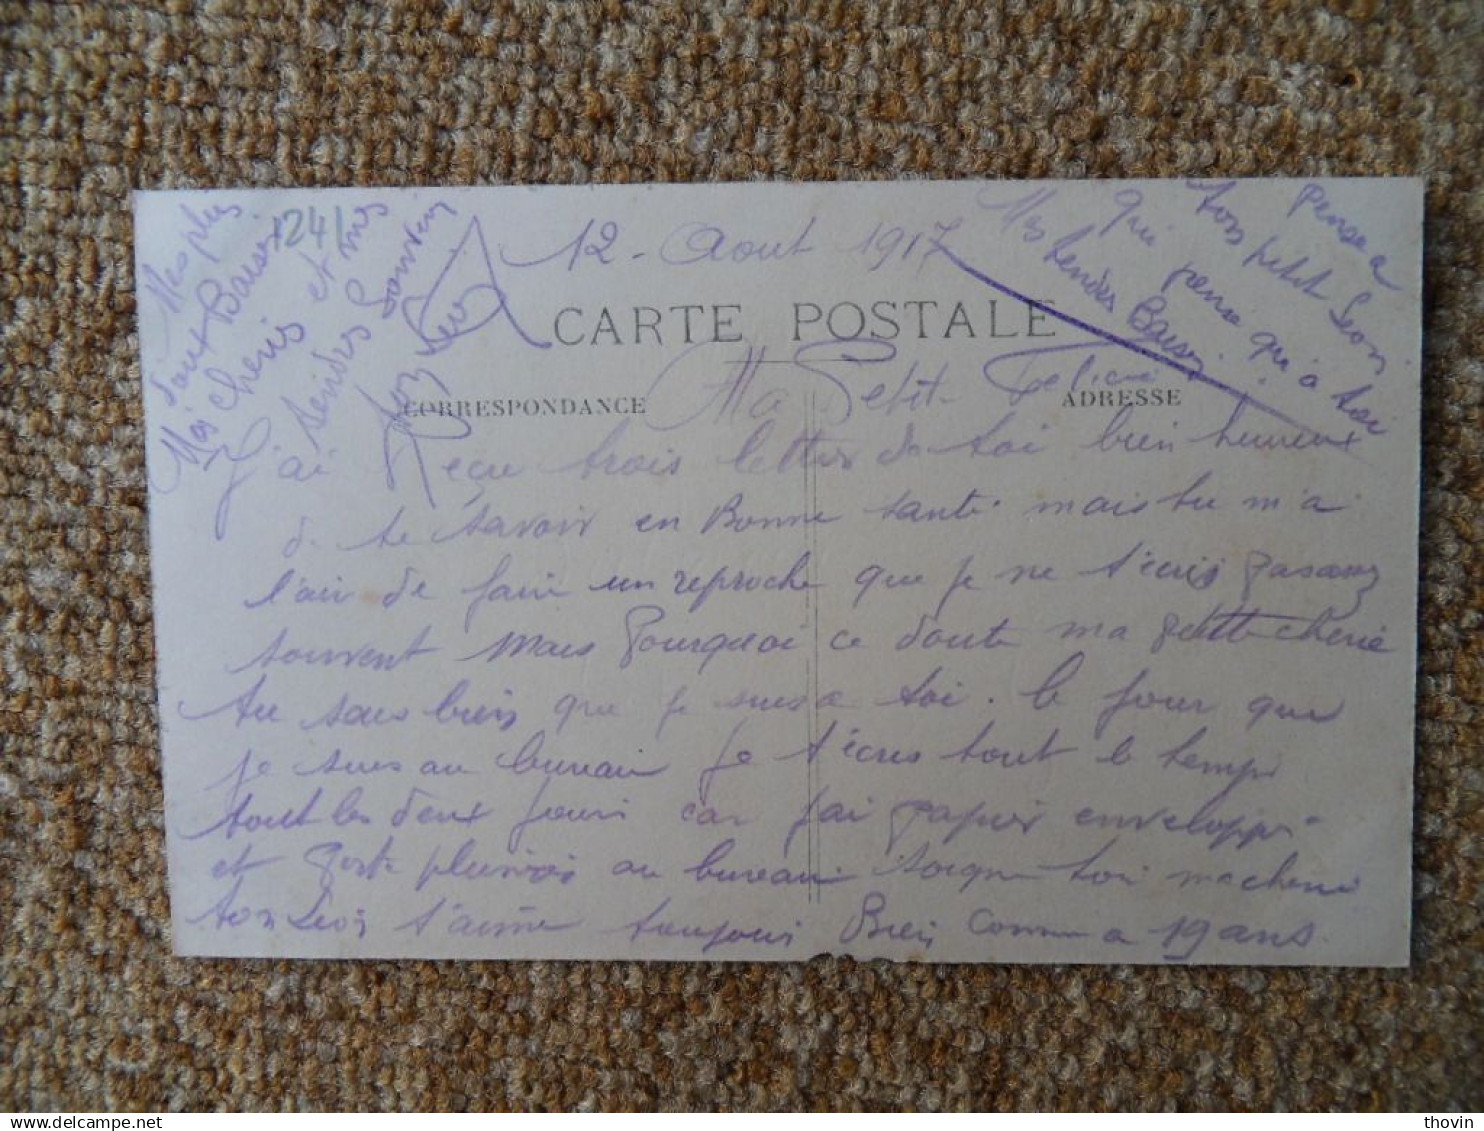 1241
Mes plus
doux Baisers
Mes cheris et mes
tendres Souvenir
ton Leon
12 - Aout 1917
Pense a
ton petit Leon
qui pense qu'à toi
Mes tendres Baisers
CARTE POSTALE
CORRESPONDANCE
ADRESSE
Ma Petit
J'ai Reçu trois lettres de toi bien heureux
de te savoir en Bonne santé mais tu m'a
l'air de faire un reproche que je ne t'écris pas assez
souvent mais Pourquoi ce doute ma petite cherie
tu sais bien que je suis a toi. le jour que
je suis au bureau je t'écris tout le temps
tout les deux jours car j'ai papier enveloppe
et porte plume au bureau soigne toi ma cherie
ton Leon t'aime toujours Bien comme a 19 ans.
thovin